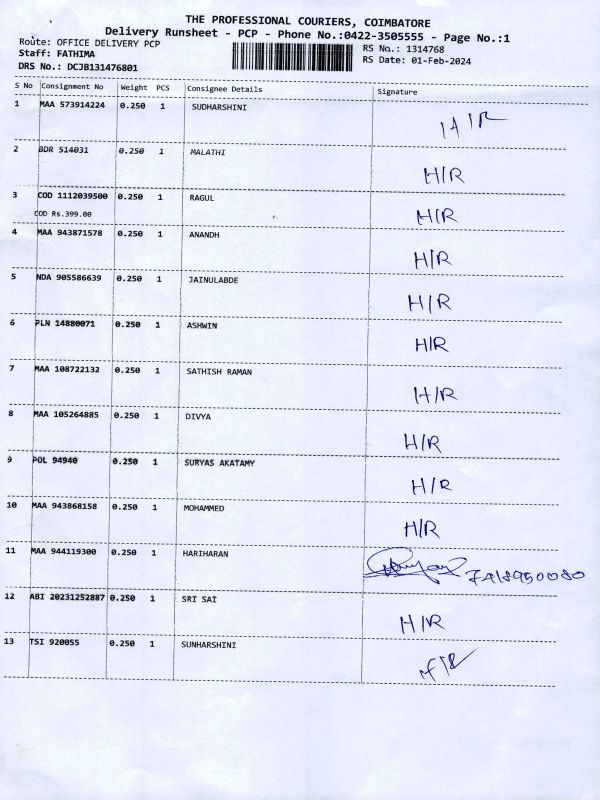 THE PROFESSIONAL COURIERS, COIMBATORE
Delivery Runsheet - PCP - Phone No.:0422-3505555 - Page No.:1
Route: OFFICE DELIVERY PCP
Staff: FATHIMA
DRS No.: DCJB131476801
RS No.: 1314768
RS Date: 01-Feb-2024
S No Consignment No Weight PCS Consignee Details Signature
1 MAA 573914224 0.250 1 SUDHARSHINI H/R
2 BDR 514031 0.250 1 MALATHI H/R
3 COD 1112039500 0.250 1 RAGUL H/R
COD Rs.399.00
4 MAA 943871578 0.250 1 ANANDH H/R
5 NDA 905586639 0.250 1 JAINULABDE H/R
6 PLN 14880071 0.250 1 ASHWIN H/R
7 MAA 108722132 0.250 1 SATHISH RAMAN H/R
8 MAA 105264885 0.250 1 DIVYA H/R
9 POL 94940 0.250 1 SURYAS AKATAMY H/R
10 MAA 943868158 0.250 1 MOHAMMED H/R
11 MAA 944119300 0.250 1 HARIHARAN
12 ABI 20231252887 0.250 1 SRI SAI H/R
13 TSI 920055 0.250 1 SUNHARSHINI H/R